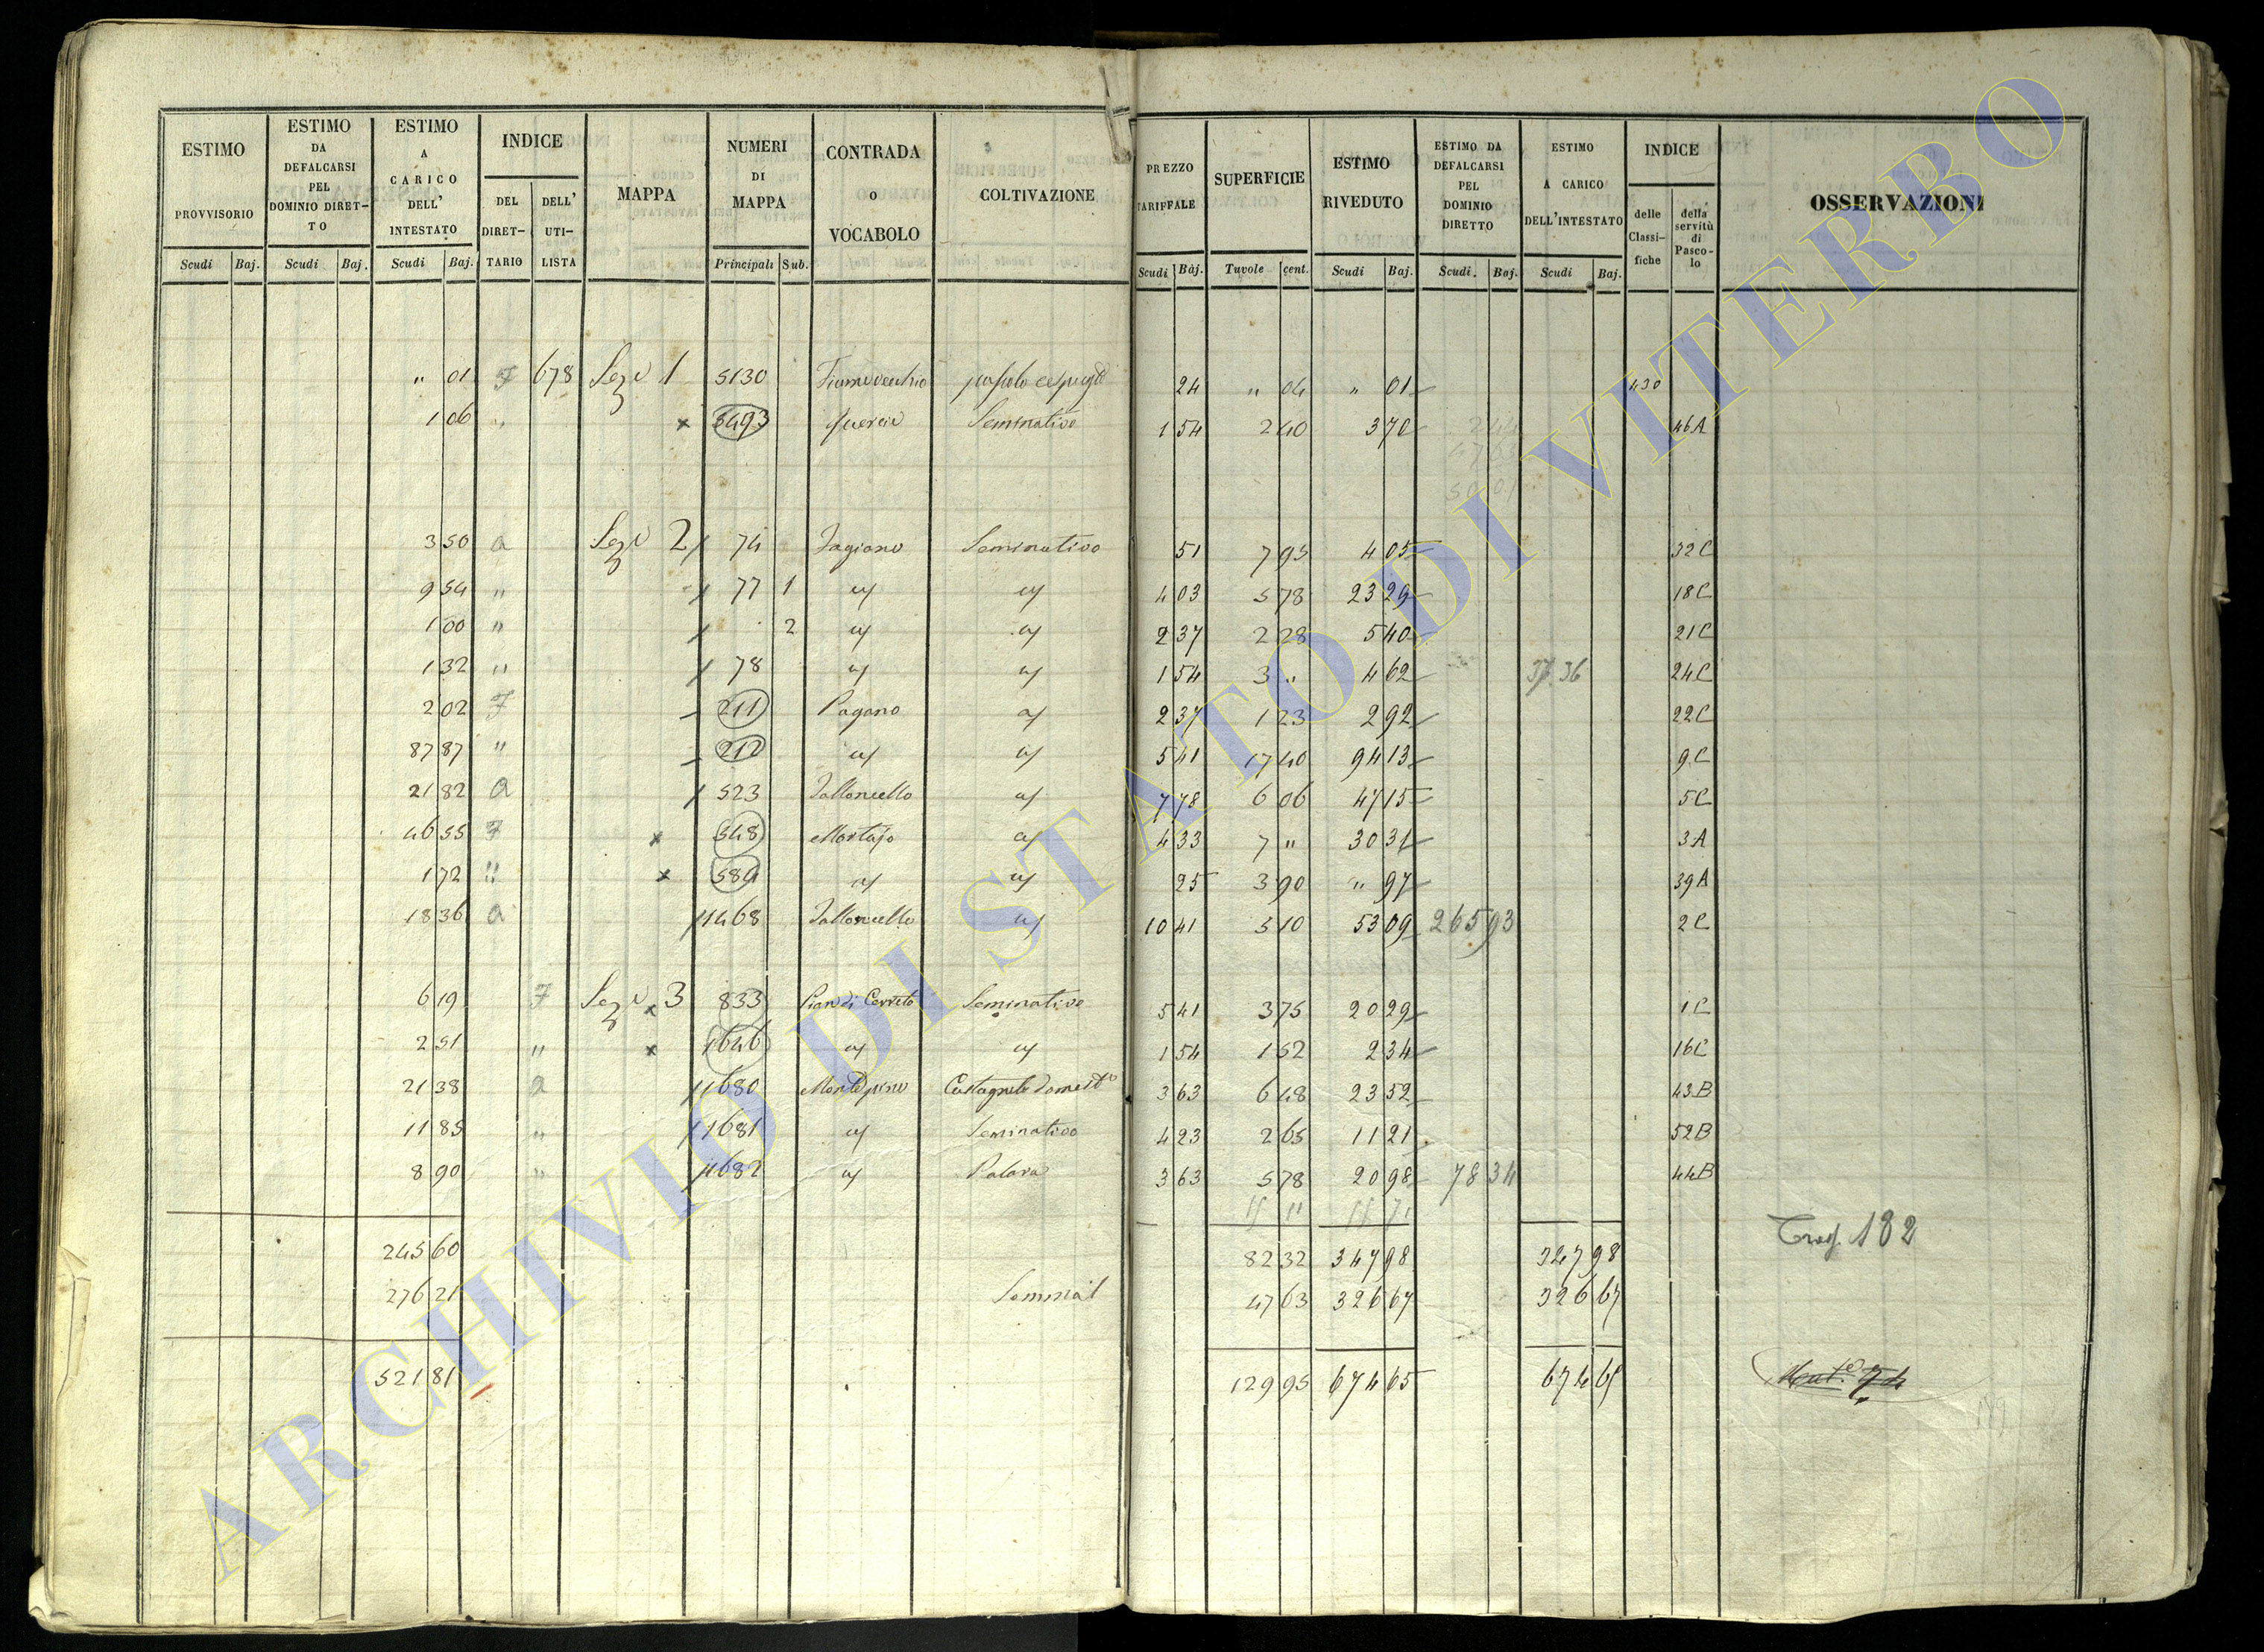 ESTIMO PROVVISORIO Scudi Baj.
ESTIMO DA DEFALCARSI PEL DOMINIO DIRETTO Scudi Baj.
ESTIMO A CARICO DELL' INTESTATO Scudi Baj.
INDICE DEL DIRETTARIO DELL' UTILISTA
MAPPA
NUMERI DI MAPPA Principali Sub.
CONTRADA o VOCABOLO
COLTIVAZIONE
PREZZO TARIFFALE Scudi Baj.
SUPERFICIE Tavole cent.
ESTIMO RIVEDUTO Scudi Baj.
ESTIMO DA DEFALCARSI PEL DOMINIO DIRETTO Scudi. Baj.
ESTIMO A CARICO DELL'INTESTATO Scudi Baj.
INDICE delle Classifiche della servitù di Pascolo
OSSERVAZIONI
" 01 F 678 Seze 1 5130 24 " 04 " 01 430
1 06 " x 5493 Seminativo 1 54 2 40 3 70 46A
3 50 a Seze 2 74 Seminativo 51 7 95 4 05 32C
9 54 " 77 1 4 03 5 78 23 29 18C
1 00 " 2 2 37 2 28 5 40 21C
1 32 " 78 1 54 3 " 4 62 37 36 24C
2 02 F 211 Pagano 2 37 1 23 2 92 22C
87 87 " 212 5 41 17 40 94 13 9C
21 82 a 523 7 78 6 06 47 15 5C
46 55 F x 548 4 33 7 " 30 31 3A
1 72 " x 584 25 3 90 " 97 39A
18 36 a 1468 10 41 5 10 53 09 265 93 2C
6 19 F Seze x 3 833 Pian di Cerreto Seminativo 5 41 3 75 20 29 1C
2 51 " x 1646 1 54 1 52 2 34 16C
21 38 a 1680 3 63 6 48 23 52 43B
11 85 " 1681 Seminativo 4 23 2 65 11 21 52B
8 90 " 1682 3 63 5 78 20 98 78 34 44B
245 60 82 32 347 98 347 98 182
276 21 47 63 326 67 326 67
521 81 129 95 674 65 674 65
ARCHIVIO DI STATO DI VITERBO